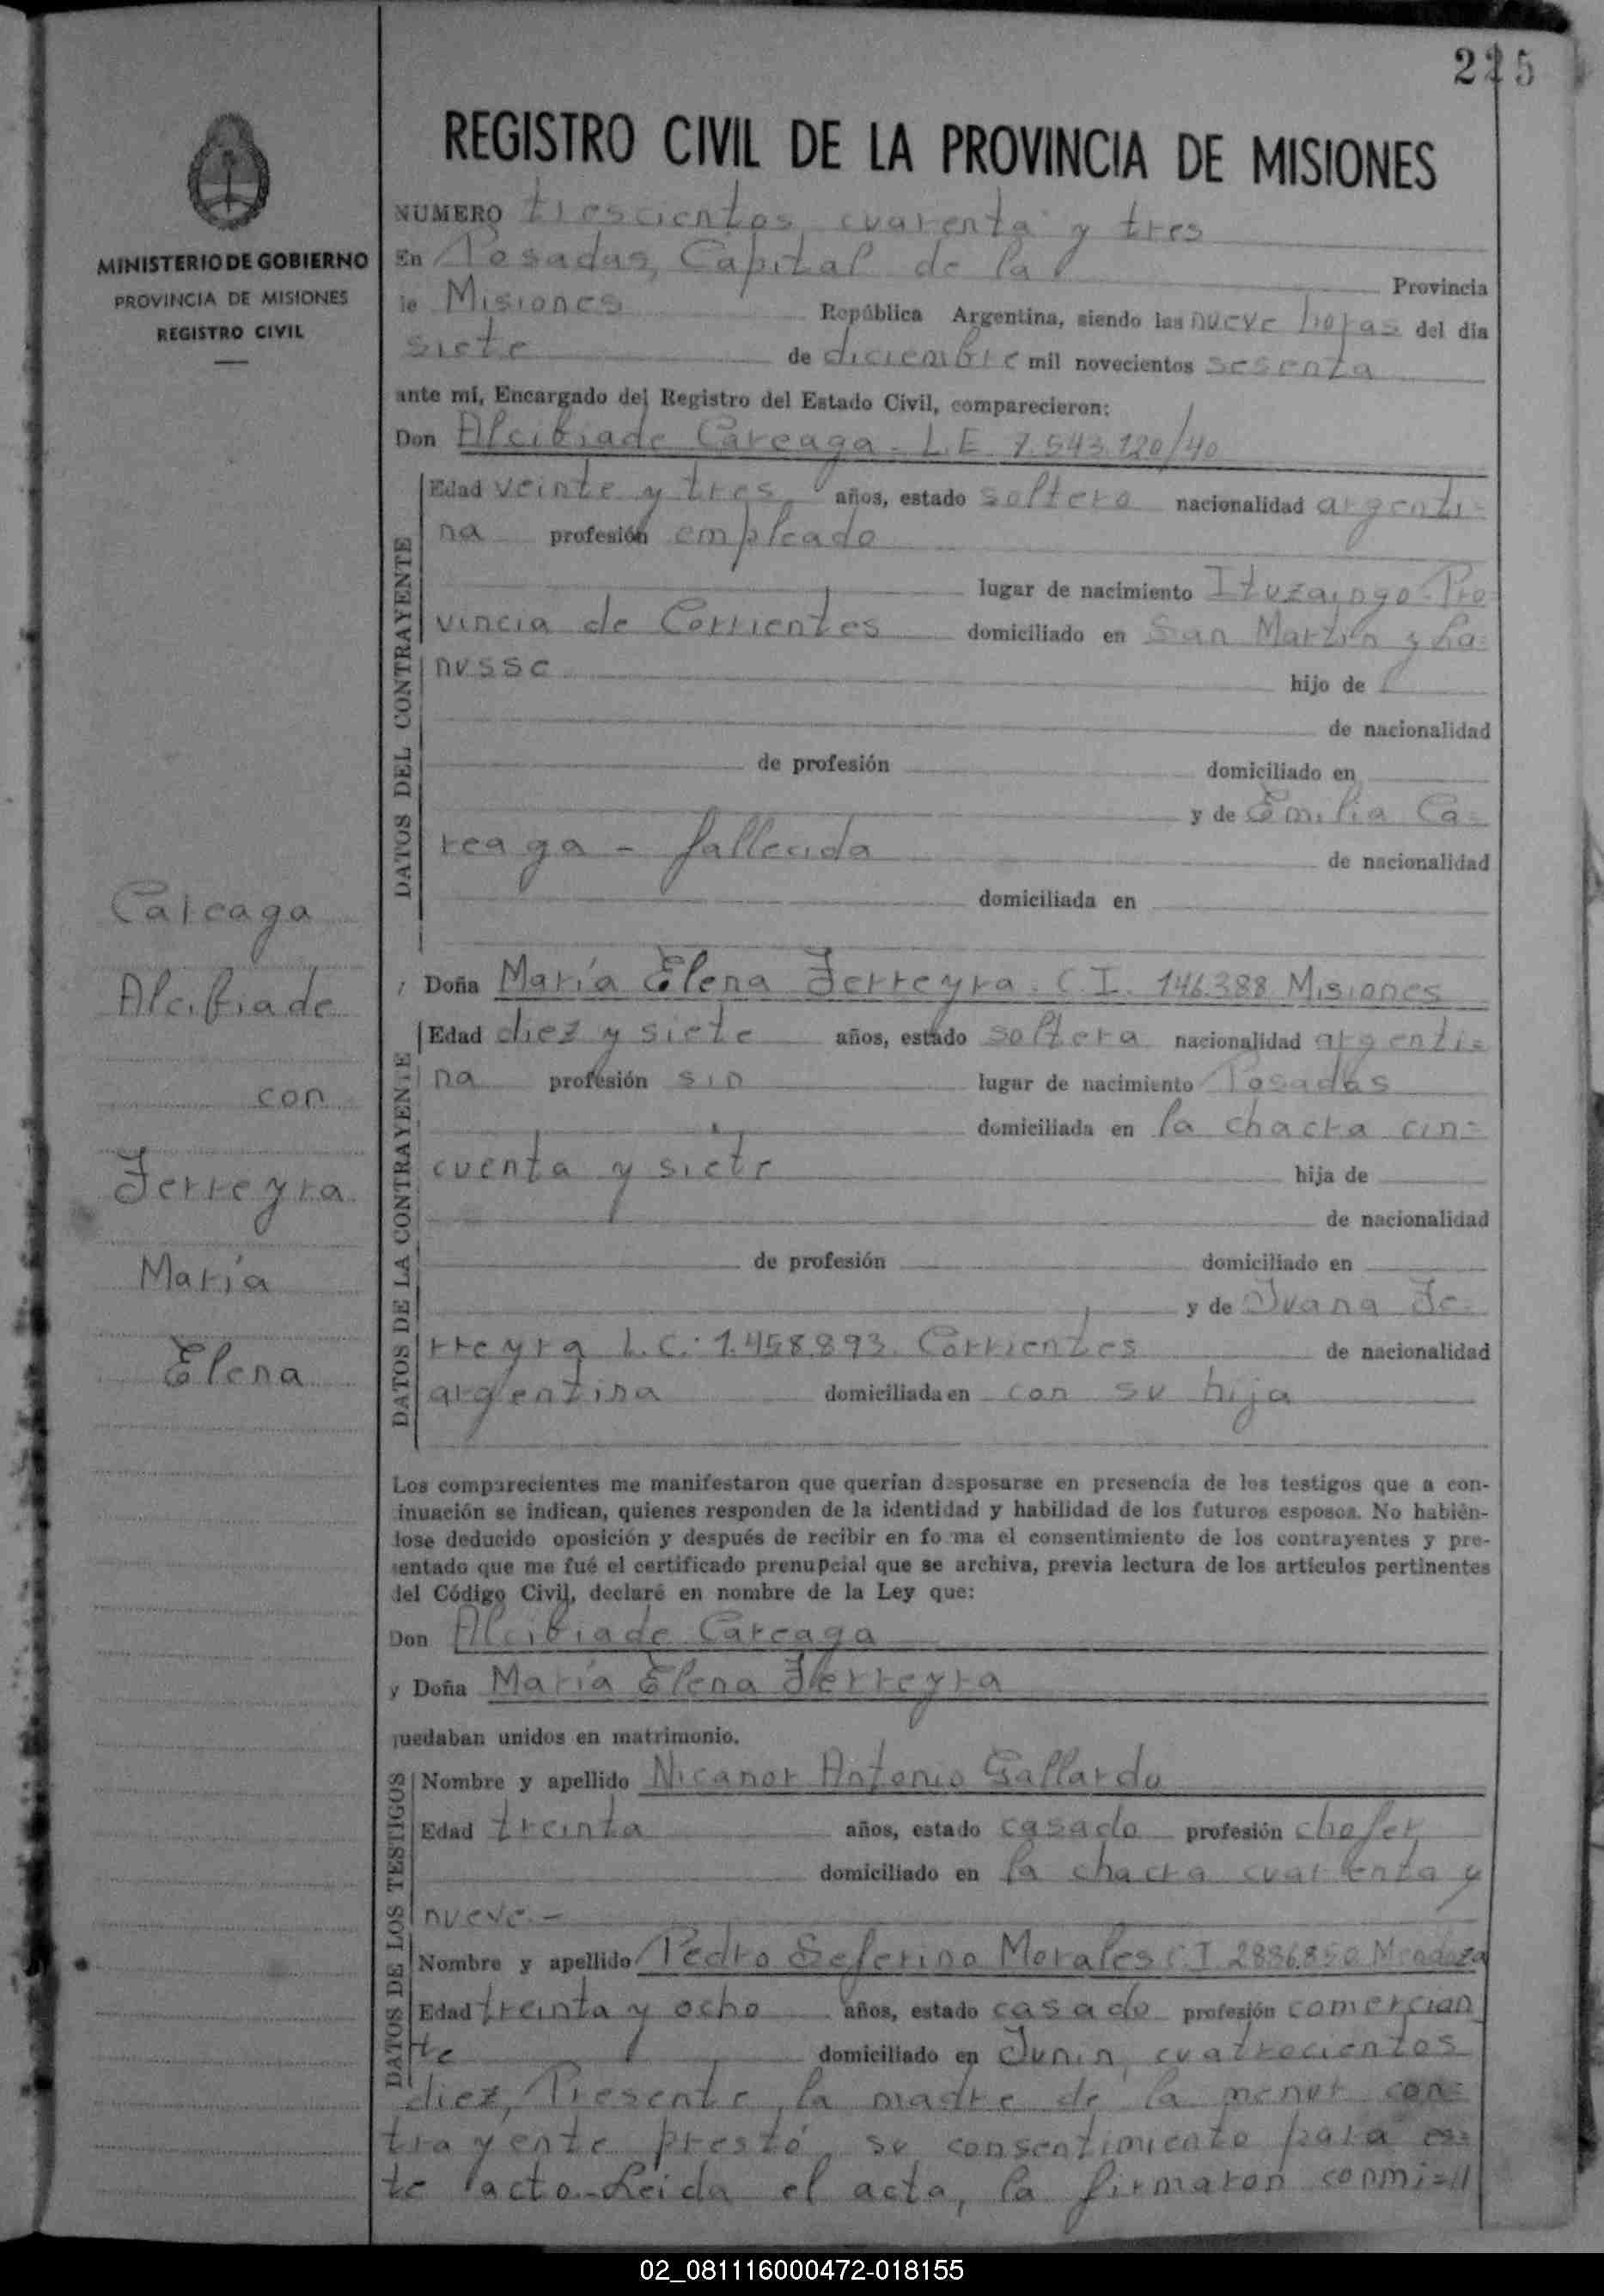 225
MINISTERIO DE GOBIERNO
PROVINCIA DE MISIONES
REGISTRO CIVIL
Careaga
Alcibiade
con
Ferreyra
María
Elena
REGISTRO CIVIL DE LA PROVINCIA DE MISIONES
NUMERO trescientos cuarenta y tres
En Posadas, Capital de la Provincia
de Misiones República Argentina, siendo las nueve horas del día
siete de diciembre mil novecientos sesenta
ante mí, Encargado del Registro del Estado Civil, comparecieron:
Don Alcibiade Careaga - L.E. 7.543.120/40
DATOS DEL CONTRAYENTE
Edad veinte y tres años, estado soltero nacionalidad argenti=
na profesión empleado
lugar de nacimiento Ituzaingo-Pro=
vincia de Corrientes domiciliado en San Martín y La=
nusse hijo de
de nacionalidad
de profesión domiciliado en
y de Emilia Ca=
reaga - fallecida de nacionalidad
domiciliada en
Doña María Elena Ferreyra. C.I. 146.388 Misiones
DATOS DE LA CONTRAYENTE
Edad diez y siete años, estado soltera nacionalidad argenti=
na profesión sin lugar de nacimiento Posadas
domiciliada en la chacra cin=
cuenta y siete hija de
de nacionalidad
de profesión domiciliado en
y de Juana Fe=
rreyra L.C.: 1.458.893. Corrientes de nacionalidad
argentina domiciliada en con su hija
Los comparecientes me manifestaron que querían desposarse en presencia de los testigos que a con-
inuación se indican, quienes responden de la identidad y habilidad de los futuros esposos. No habién-
lose deducido oposición y después de recibir en fo ma el consentimiento de los contrayentes y pre-
sentado que me fué el certificado prenupcial que se archiva, previa lectura de los artículos pertinentes
del Código Civil, declaré en nombre de la Ley que:
Don Alcibiade Careaga
y Doña María Elena Ferreyra
quedaban unidos en matrimonio.
DATOS DE LOS TESTIGOS
Nombre y apellido Nicanor Antonio Gallardo
Edad treinta años, estado casado profesión chofer
domiciliado en la chacra cuarenta y
nueve.-
Nombre y apellido Pedro Seferino Morales C.I. 2886.850 Mendoza
Edad treinta y ocho años, estado casado profesión comercian
te domiciliado en Junín, cuatrocientos
diez, Presente, la madre de la menor con=
trayente prestó su consentimiento para es=
te acto-Leída el acta, la firmaron conmi=//
02_081116000472-018155